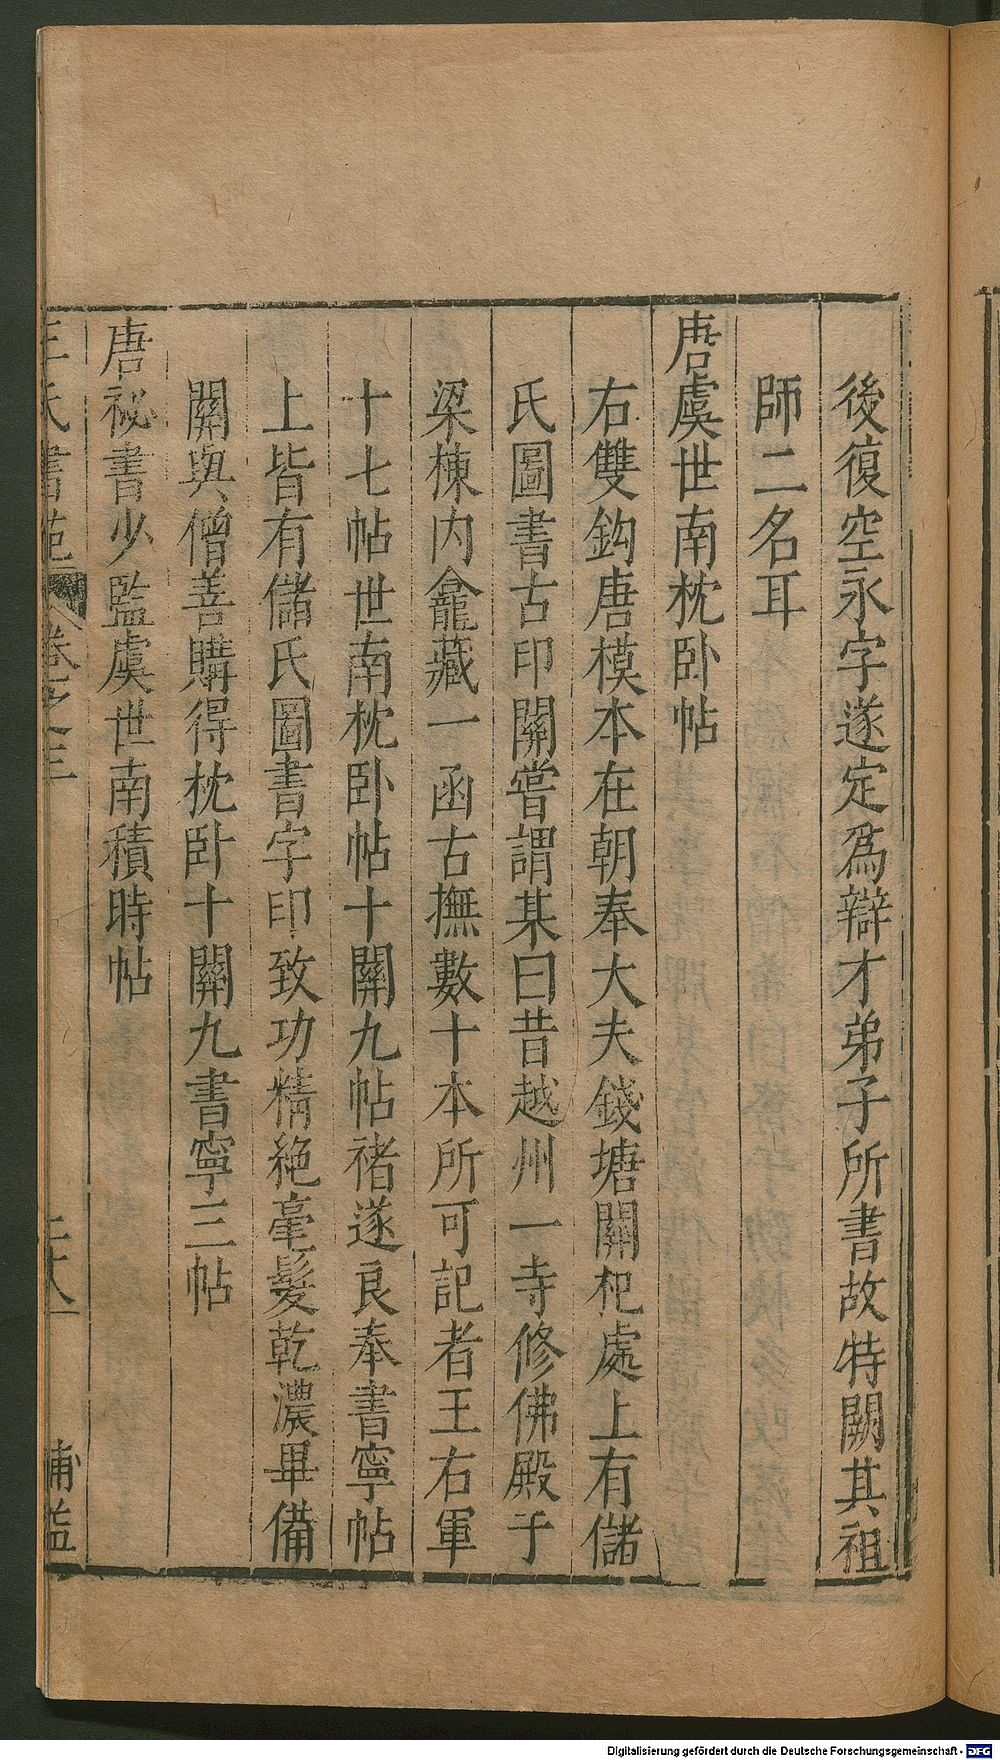 後復空永字遂定為辯才弟子所書故特闕其祖
師二名耳
唐虞世南枕卧帖
右雙鈎唐模本在朝奉大夫錢塘關杞處上有儲
氏圖書古印關嘗謂某曰昔越州一寺修佛殿于
梁棟内龕藏一函古撫數十本所可記者王右軍
十七帖世南枕卧帖十關九帖褚遂良奉書寧帖
上皆有儲氏圖書字印致功精絶毫髮乾濃畢備
關與僧善購得枕卧十關九書寧三帖
唐祕書少監虞世南積時帖
王氏書苑 卷之三 二十八 補益
Digitalisierung gefördert durch die Deutsche Forschungsgemeinschaft - DFG